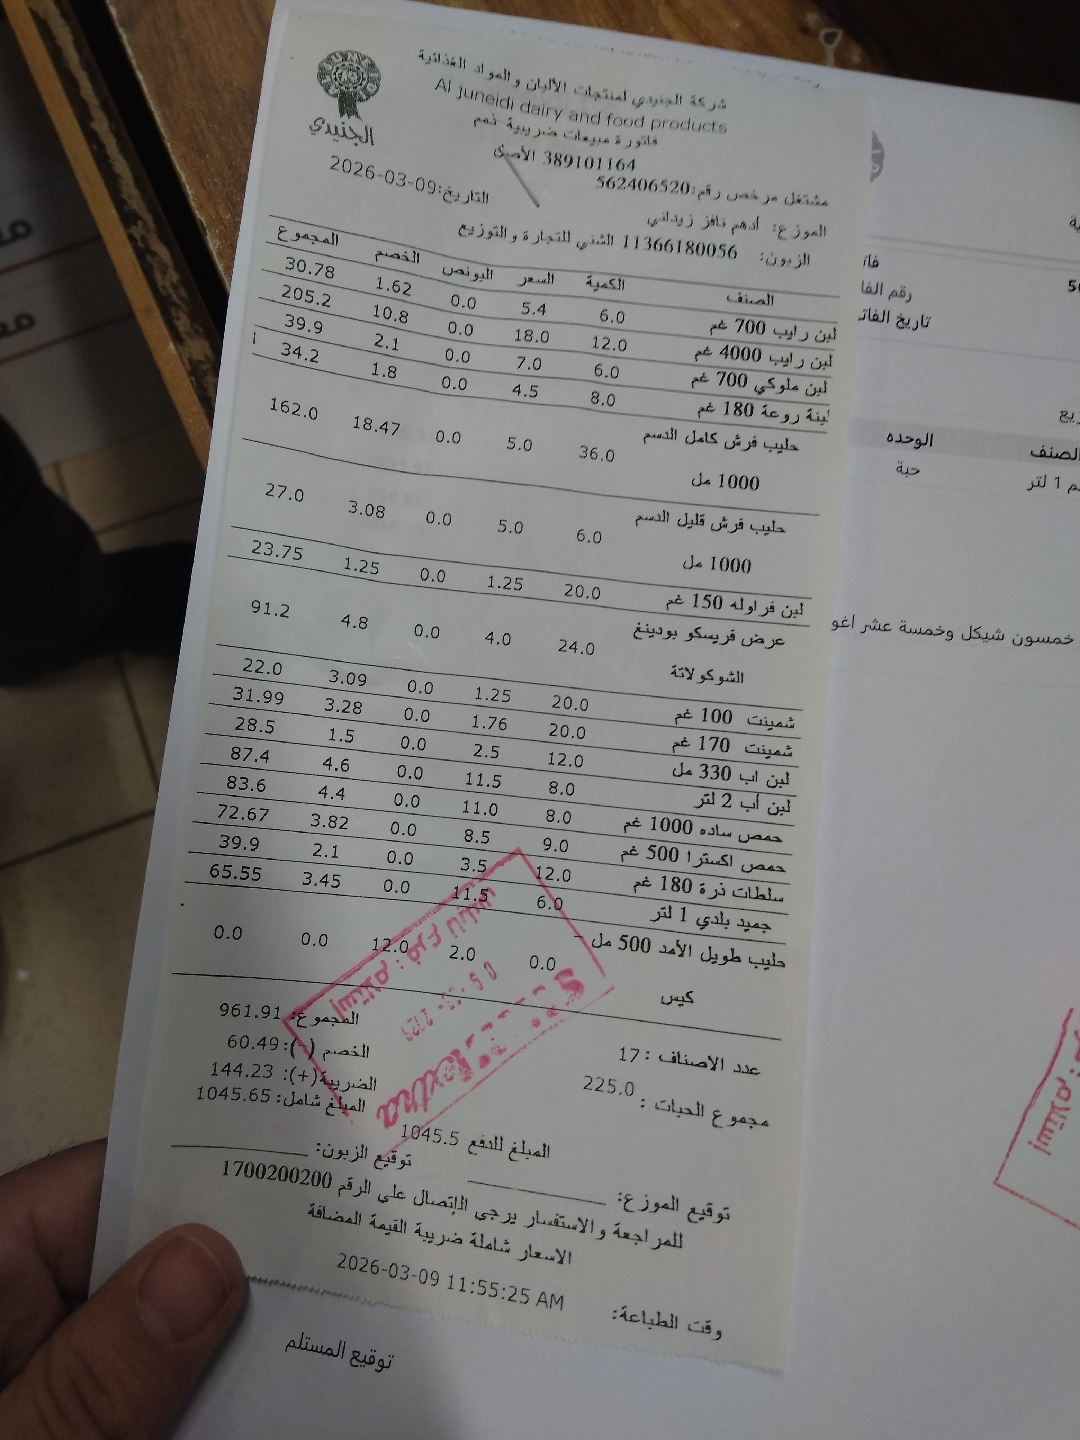 شركة الجنيدي لمنتجات الألبان والمواد الغذائية
Al juneidi dairy and food products
الجنيدي
فاتورة مبيعات ضريبية ذمم
389101164 الأصلي
مشتغل مرخص رقم:562406520
التاريخ:2026-03-09
الموزع: ادهم نافز زيداني
الزبون: 11366180056 الشني للتجارة والتوزيع
الصنف الكمية السعر البونص الخصم المجموع
لبن رايب 700 غم 6.0 5.4 0.0 1.62 30.78
لبن رايب 4000 غم 12.0 18.0 0.0 10.8 205.2
لبن ملوكي 700 غم 6.0 7.0 0.0 2.1 39.9
لبنة روعة 180 غم 8.0 4.5 0.0 1.8 34.2
حليب فرش كامل الدسم 36.0 5.0 0.0 18.47 162.0
1000 مل
حليب فرش قليل الدسم 6.0 5.0 0.0 3.08 27.0
1000 مل
لبن فراوله 150 غم 20.0 1.25 0.0 1.25 23.75
عرض فريسكو بودينغ 24.0 4.0 0.0 4.8 91.2
الشوكولاتة
شمينت 100 غم 20.0 1.25 0.0 3.09 22.0
شمينت 170 غم 20.0 1.76 0.0 3.28 31.99
لبن اب 330 مل 12.0 2.5 0.0 1.5 28.5
لبن أب 2 لتر 8.0 11.5 0.0 4.6 87.4
حمص ساده 1000 غم 8.0 11.0 0.0 4.4 83.6
حمص اكسترا 500 غم 9.0 8.5 0.0 3.82 72.67
سلطات ذرة 180 غم 12.0 3.5 0.0 2.1 39.9
جميد بلدي 1 لتر 6.0 11.5 0.0 3.45 65.55
حليب طويل الأمد 500 مل - 0.0 2.0 12.0 0.0 0.0
كيس
عدد الاصناف : 17
مجموع الحبات : 225.0
المجموع: 961.91
الخصم (-): 60.49
الضريبة(+): 144.23
المبلغ شامل: 1045.65
المبلغ للدفع 1045.5
extra
توقيع الموزع: توقيع الزبون:
للمراجعة والاستفسار يرجي الإتصال علي الرقم 1700200200
الاسعار شاملة ضريبة القيمة المضافة
وقت الطباعة: 2026-03-09 11:55:25 AM
توقيع المستلم
رقم الفا
تاريخ الفات
الصنف الوحده
م 1 لتر حبة
خمسون شيكل وخمسة عشر اغو